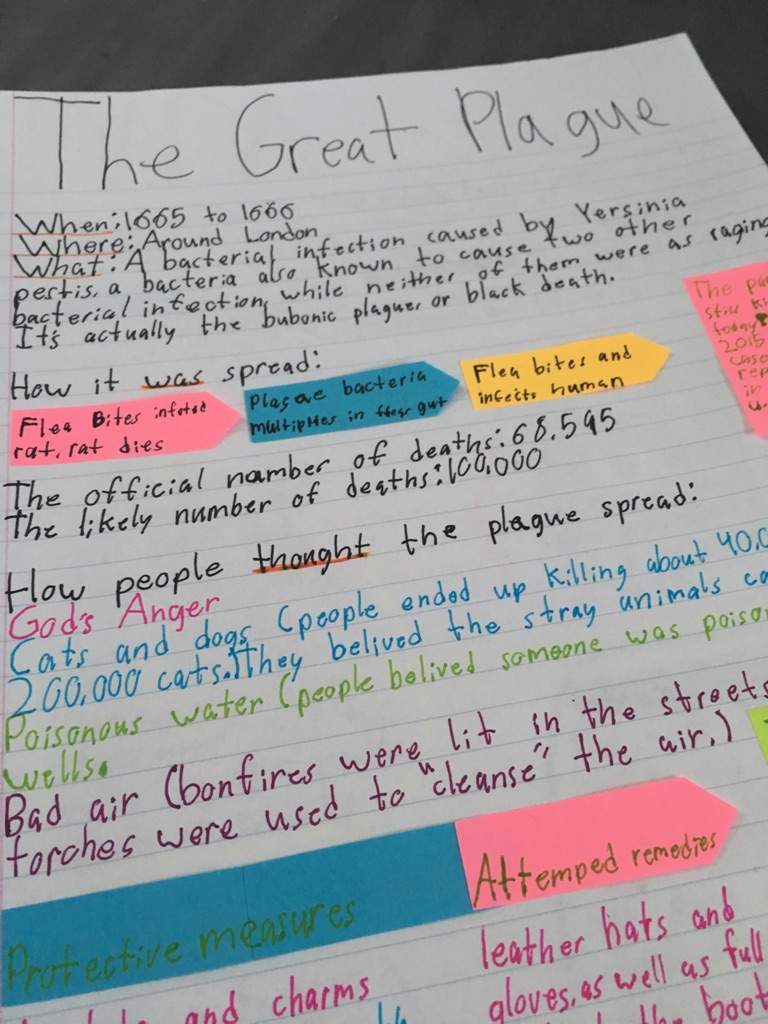 The Great Plague
When: 1665 to 1666
Where: Around London
What: A bacterial infection caused by Yersinia
pestis, a bacteria also known to cause two other
bacterial infection, while neither of them were as raging
It's actually the bubonic plague, or black death.
How it was spread:
Flea Bites infeted
rat, rat dies
Plagae bacteria
multiplies in gut
Flea bites and
infects human
The pa
still ki
today
2015
case
rep
in
u.
The official namber of deaths: 68,595
The likely number of deaths: 100,000
How people thought the plague spread:
God's Anger
Cats and dogs (people ended up killing about 40,0
200,000 cats.) They belived the stray animals ca
Poisonous water (people belived someone was poiso
wells.
Bad air (bonfires were lit in the streets
torches were used to "cleanse" the air.)
Protective measures
Attemped remedies
and charms
leather hats and
gloves, as well as full
boot